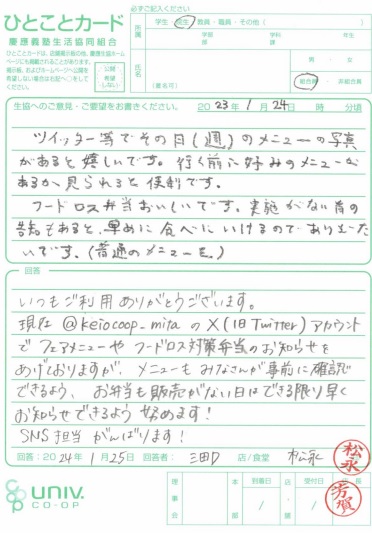 必ずご記入ください
ひとことカード
慶應義塾生活協同組合
ひとことカードは、店頭掲示板の他、慶應生協ホーム
ページにも掲載されることがあります。
公開
希望しない
学生・院生・教員・職員・その他( )
所属
学部
学科
学年
氏名
(署名可)
組合員・非組合員
生協へのご意見・ご要望をお書きください。 2023年1月24日 時 分頃
ツイッター等でその日(週)のメニューの写真
があると嬉しいです。行く前に好みのメニューが
あるか見られると便利です。
フードロス弁当おいしいです。実施がない日の
告知もあると、早めに食べにいけるのでありがた
いです。(普通のメニューを。)
回答
いつもご利用ありがとうございます。
現在@keiocoop_mitaのX(旧Twitter)アカウント
でフェアメニューやフードロス対策弁当のお知らせを
あげておりますが、メニューもみなさんが事前に確認
できるよう、お弁当も販売がない日はできる限り早く
お知らせできるよう努めます!
SNS担当がんばります!
回答:2024年1月25日 回答者: 三田 店/食堂 松永
松永
UNIV.
CO-OP
理事会
到着日
店・部
受付日
芳賀